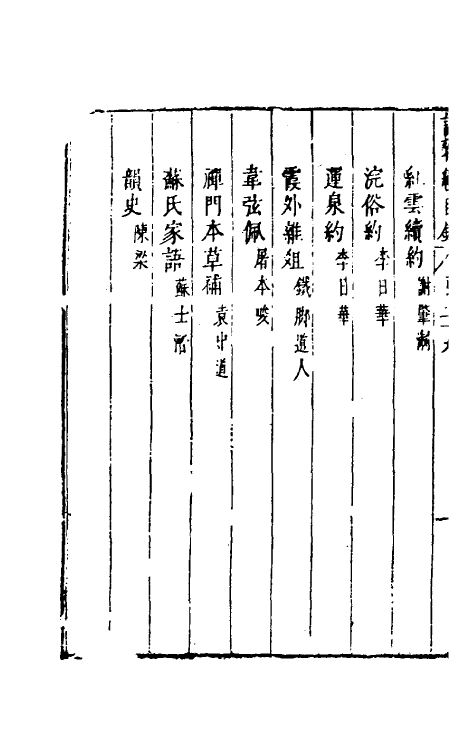 紅雲續約 謝肇淛
浣俗約 李日華
運泉約 李日華
霞外雜俎 鐵腳道人
韋弦佩 屠本畯
禪門本草補 袁中道
蘇氏家語 蘇士潛
韻史 陳梁